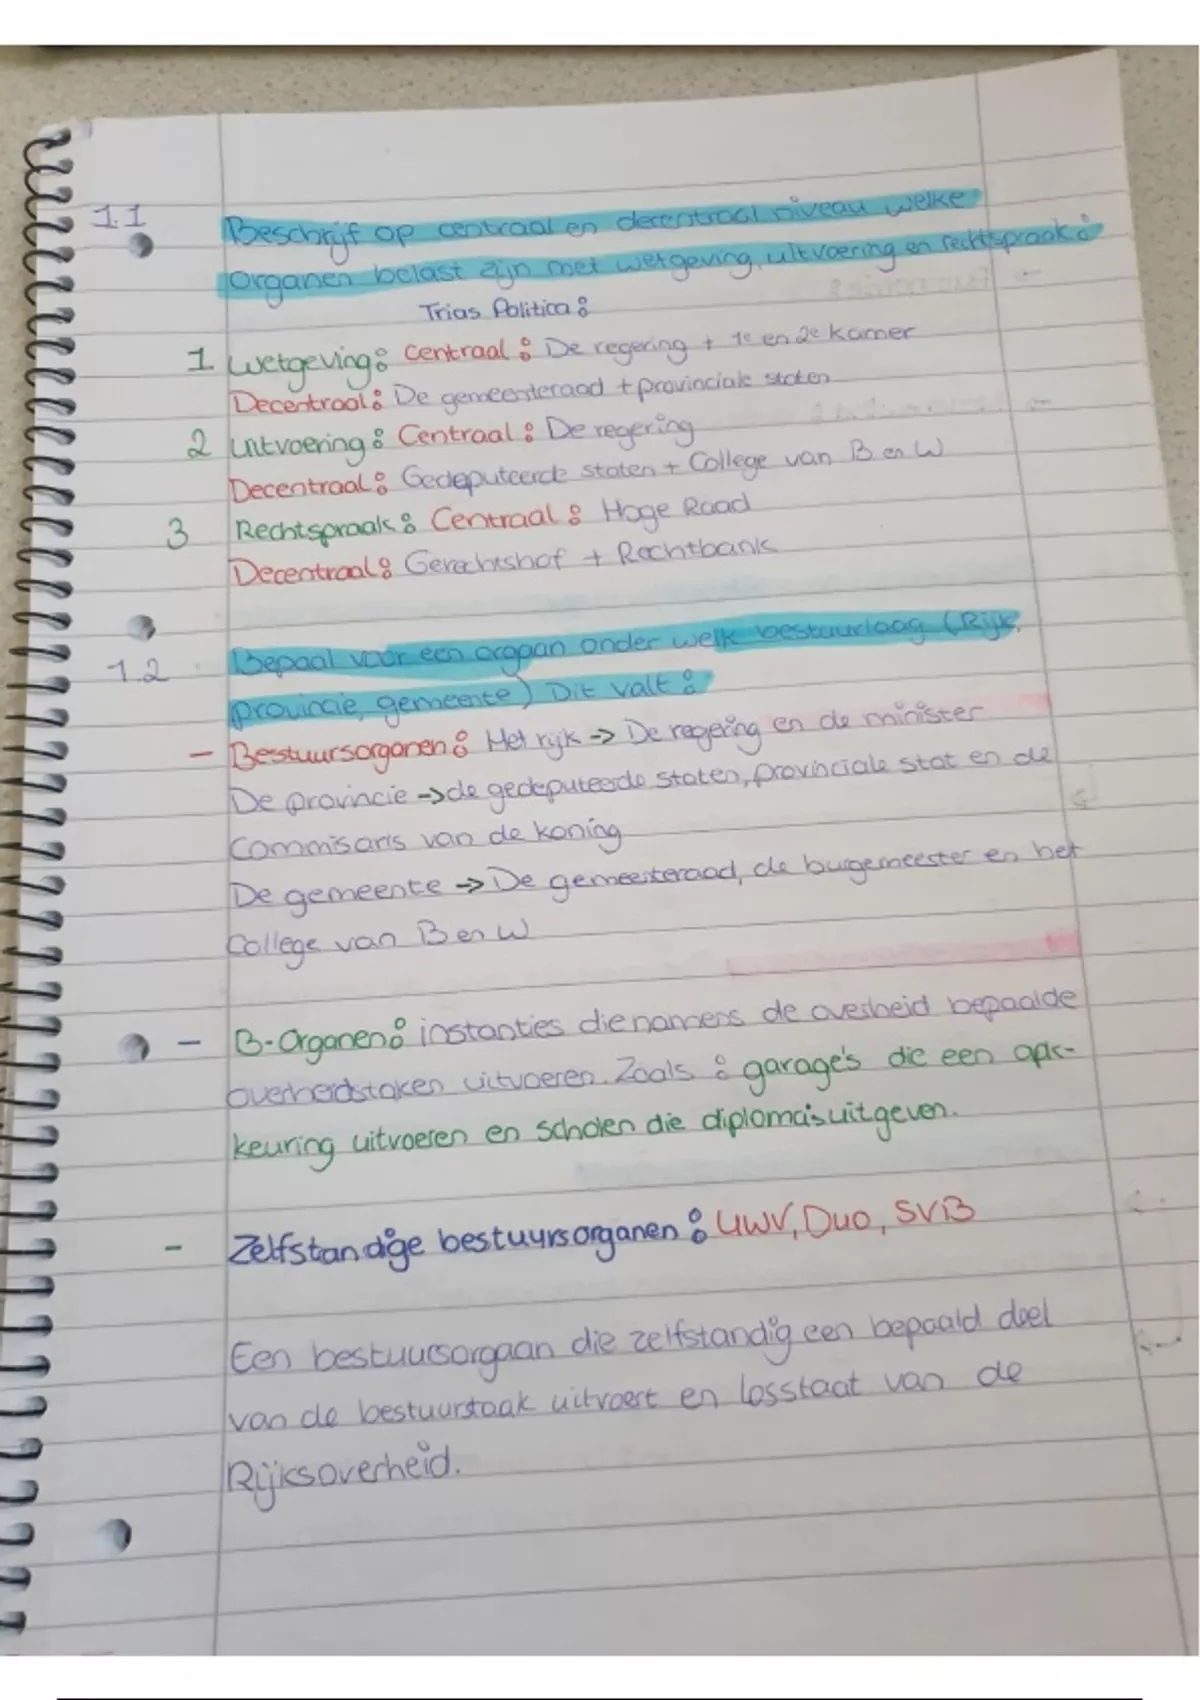 1.1 Beschrijf op centraal en decentraal niveau welke
organen belast zijn met wetgeving, uitvoering en rechtspraak:
Trias Politica:
1 Wetgeving: Centraal: De regering + 1e en 2e kamer
Decentraal: De gemeenteraad + provinciale staten
2 Uitvoering: Centraal: De regering
Decentraal: Gedeputeerde staten + College van B en W
3 Rechtspraak: Centraal: Hoge Raad
Decentraal: Gerechtshof + Rechtbank
1.2 Bepaal voor een orgaan onder welk bestuurlaag (Rijk,
provincie, gemeente) Dit valt:
- Bestuursorganen: Het rijk -> De regering en de minister
De provincie -> de gedeputeerde staten, provinciale stat en de
Commisaris van de koning
De gemeente -> De gemeenteraad, de burgemeester en het
College van B en W
- B-Organen: instanties die namens de overheid bepaalde
overheidstaken uitvoeren. Zoals: garage's die een apk-
keuring uitvoeren en scholen die diploma's uitgeven.
- Zelfstandige bestuursorganen: UWV, Duo, SVB
Een bestuursorgaan die zelfstandig een bepaald deel
van de bestuurstaak uitvoert en losstaat van de
Rijksoverheid.